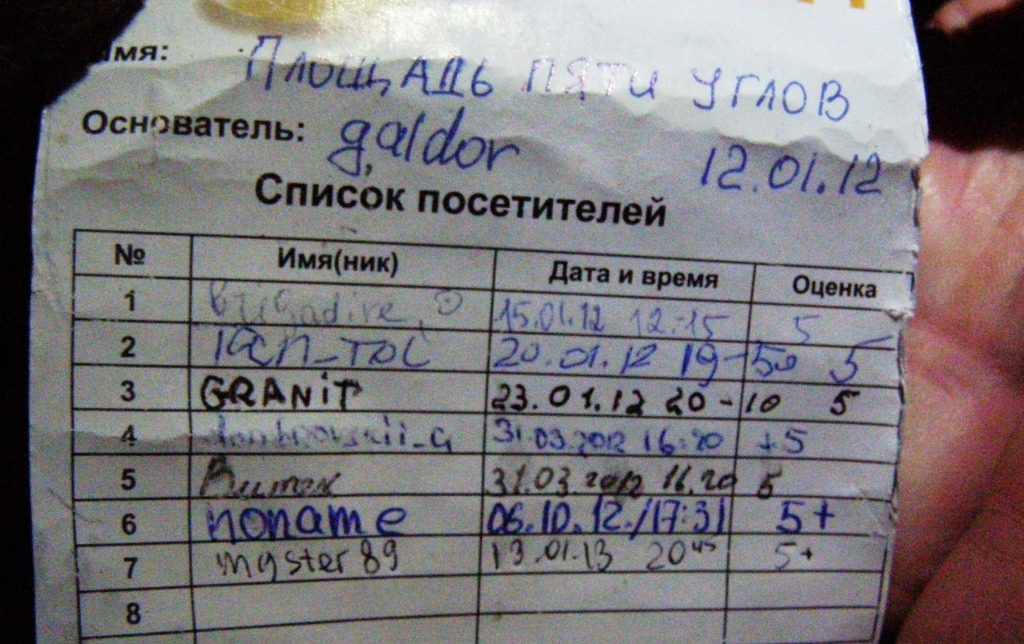 Имя:
ПЛОЩАДЬ ПЯТИ УГЛОВ
Основатель: galdor
12.01.12
Список посетителей
№ Имя(ник) Дата и время Оценка
1 brigadire 15.01.12 12-15 5
2 20.01.12 19-50 5
3 GRANiT 23.01.12 20-10 5
4 31.03.2012 16:20 +5
5 Витек 31.03.2012 16.20 5
6 noname 06.10.12./17:31 5+
7 myster89 13.01.13 20 45 5+
8